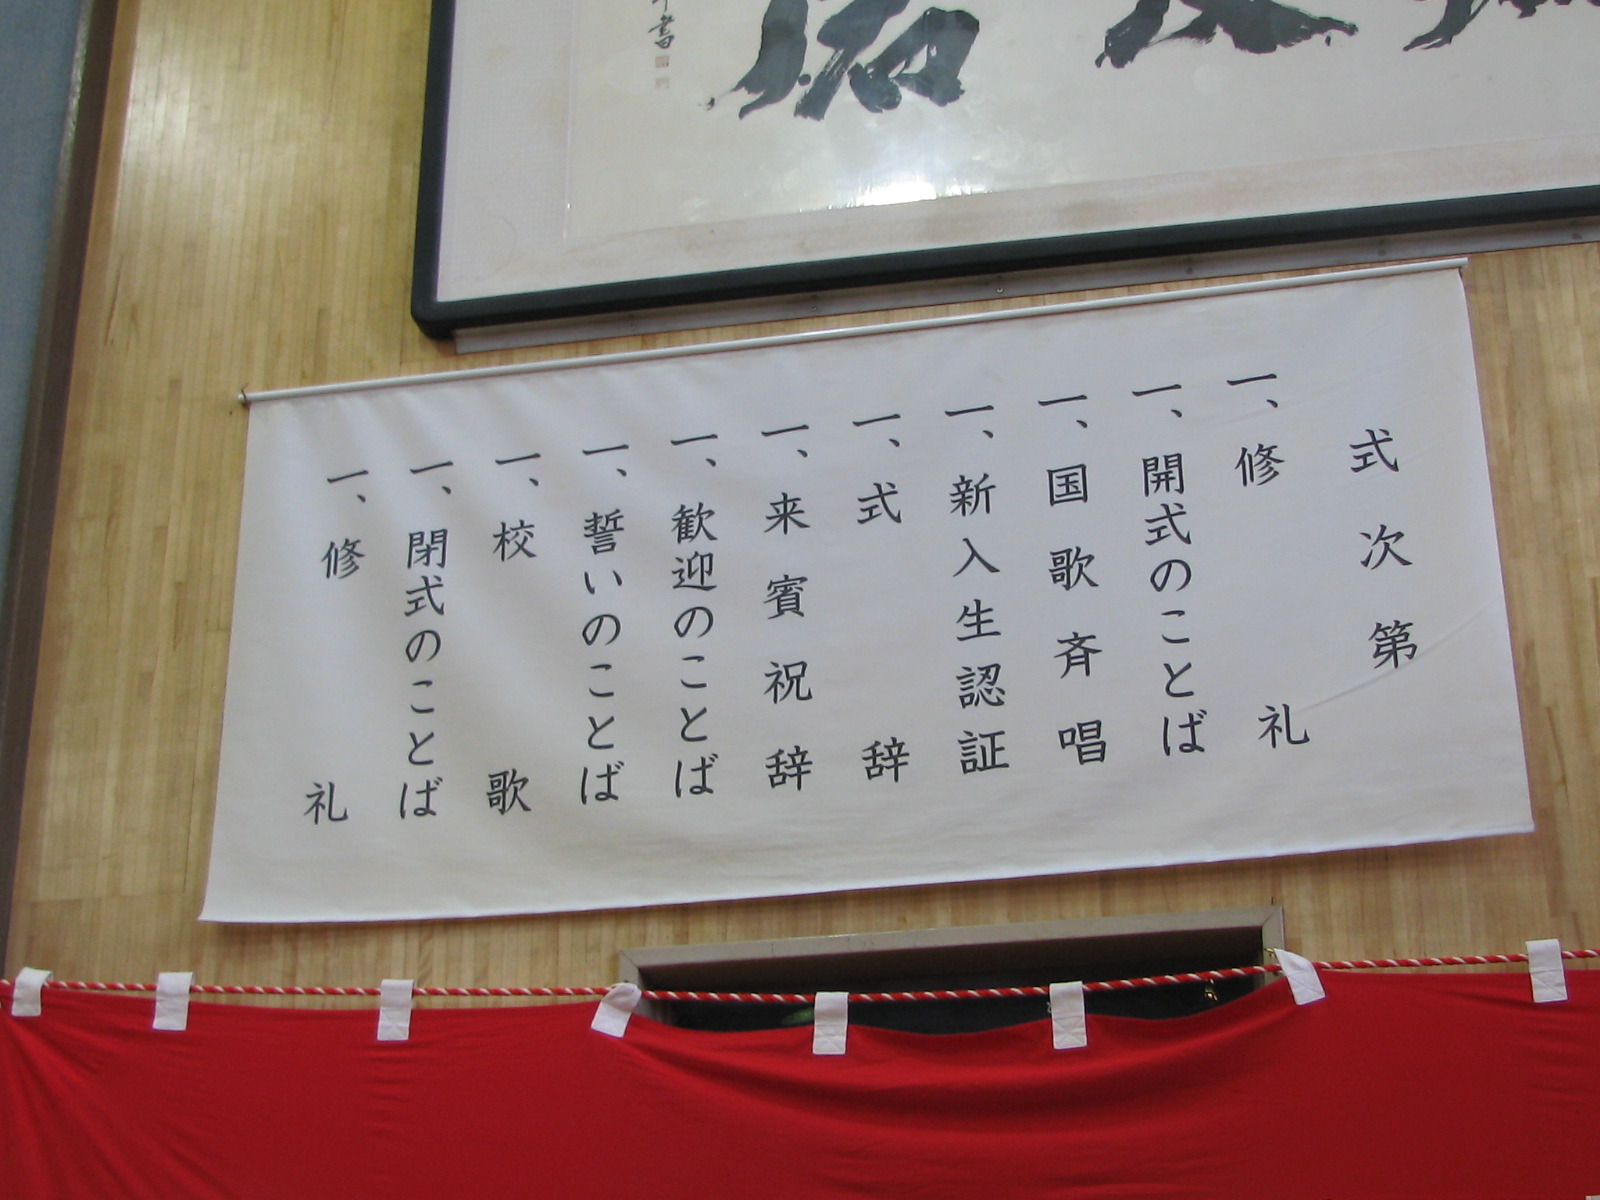 式次第
一、修礼
一、開式のことば
一、国歌斉唱
一、新入生認証
一、式辞
一、来賓祝辞
一、歓迎のことば
一、誓いのことば
一、校歌
一、閉式のことば
一、修礼
書